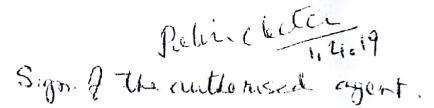 1.4.19
Sign. of the authorised agent.